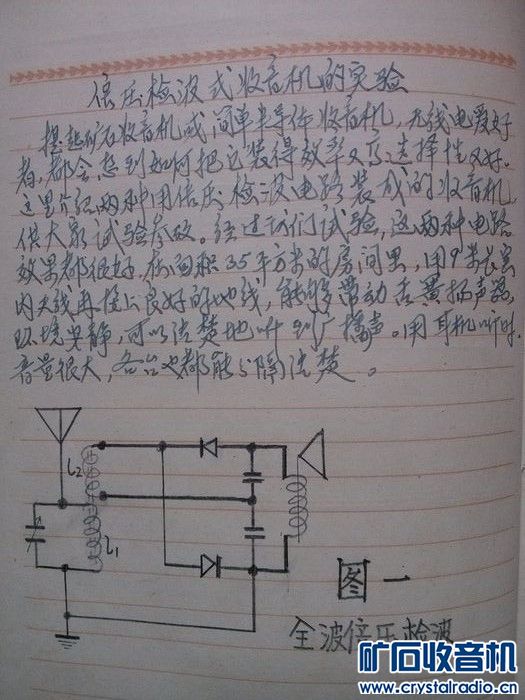 倍压检波式收音机的实验
提起矿石收音机或简单半导体收音机，无线电爱好
者，都会想到如何把它装得效率又高选择性又好。
这里介绍两种用倍压检波电路装成的收音机，
供大家试验参考。经过我们试验，这两种电路
效果都很好，在面积35平方米的房间里，用9米长室
内天线再接上良好的地线，能够带动舌簧扬声器，
环境安静，可以清楚地听到广播声。用耳机听时
音量很大，各台也都能分隔清楚。
L2
L1
图一
全波倍压检波
矿石收音机
www.crystalradio.cn